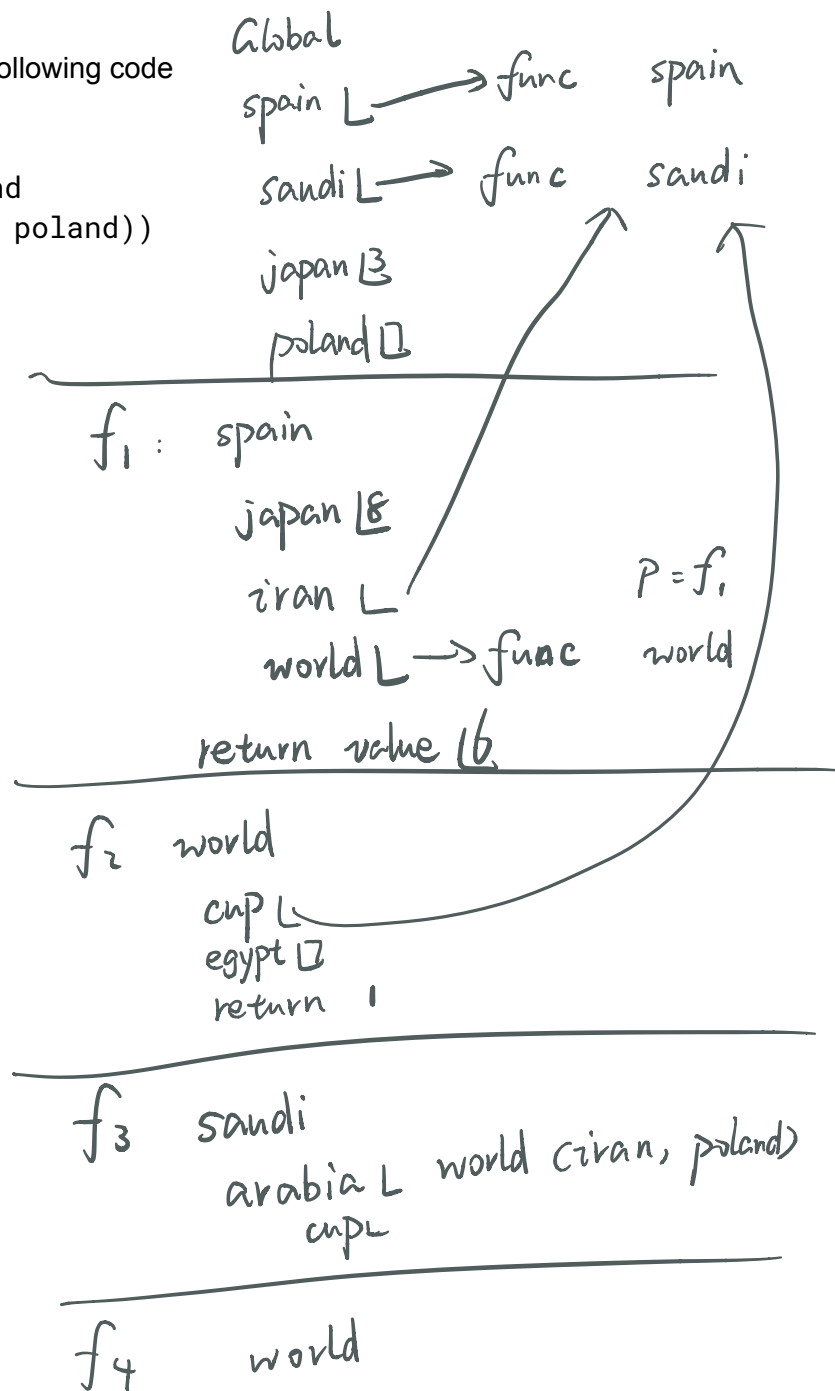 ollowing code
nd
poland))
Global
spain func spain
saudi func saudi
japan 3
poland
f1: spain
japan 8
iran
P = f1
world func world
return value 6
f2 world
cup
egypt
return 1
f3 saudi
arabia world (iran, poland)
cup
f4 world